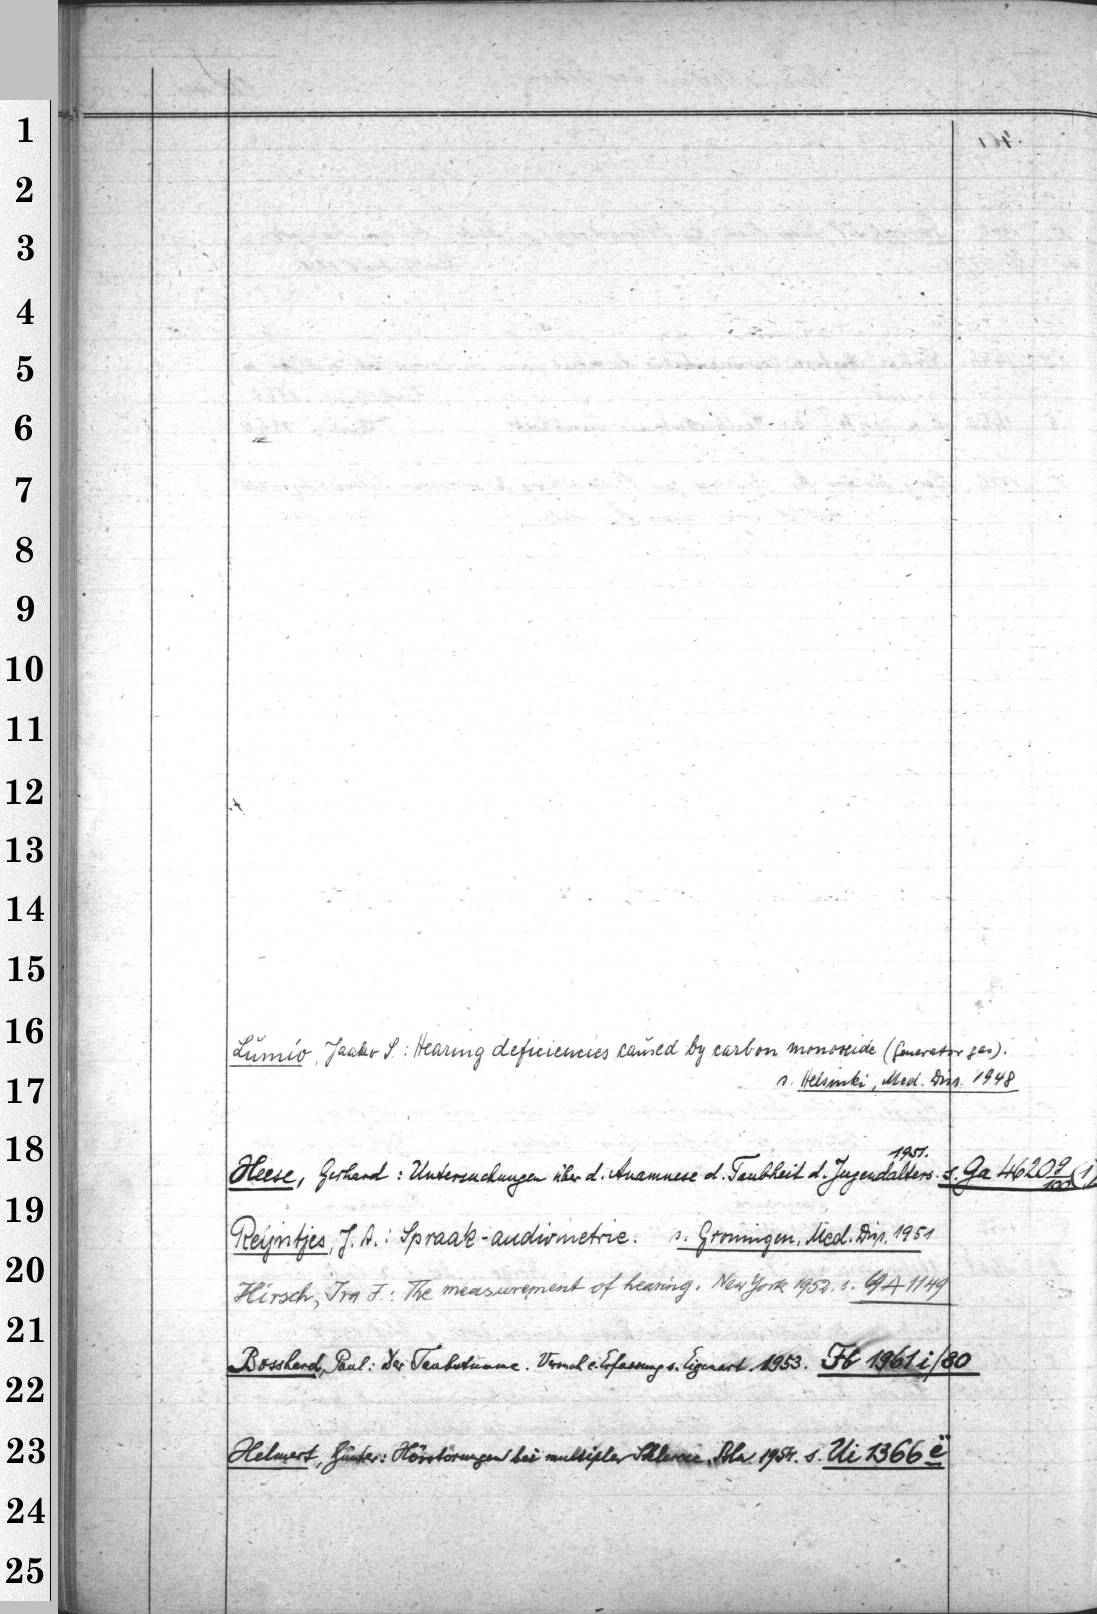 1
2
3
4
5
6
7
8
9
10
11
12
13
14
15
16
17
18
19
20
21
22
23
24
25
Lúmio, Jaakko S.: Hearing deficiencies caúsed by carbon monoxide (Generator gas).
s. Helsinki, Med. Diss. 1948
1951.
Heese, Gerhard: Untersuchungen über d. Anamnese d. Taubheit d. Jugendalters. s. Ga 4620 9/100 (1)
Reijntjes, J. A.: Spraak-audiometrie. s. Groningen, Med. Diss. 1951
Hirsch, Ira J.: The measurement of hearing. New York 1952. s. GA 1149
Bosshard, Paul: Der Taubstumme. Versuch e. Erfassung s. Eigenart. 1953. Fb 1961 i/80
Helmert, Günter: Hörstörungen bei multipler Sklerose. 1954. s. Ui 1366 ë